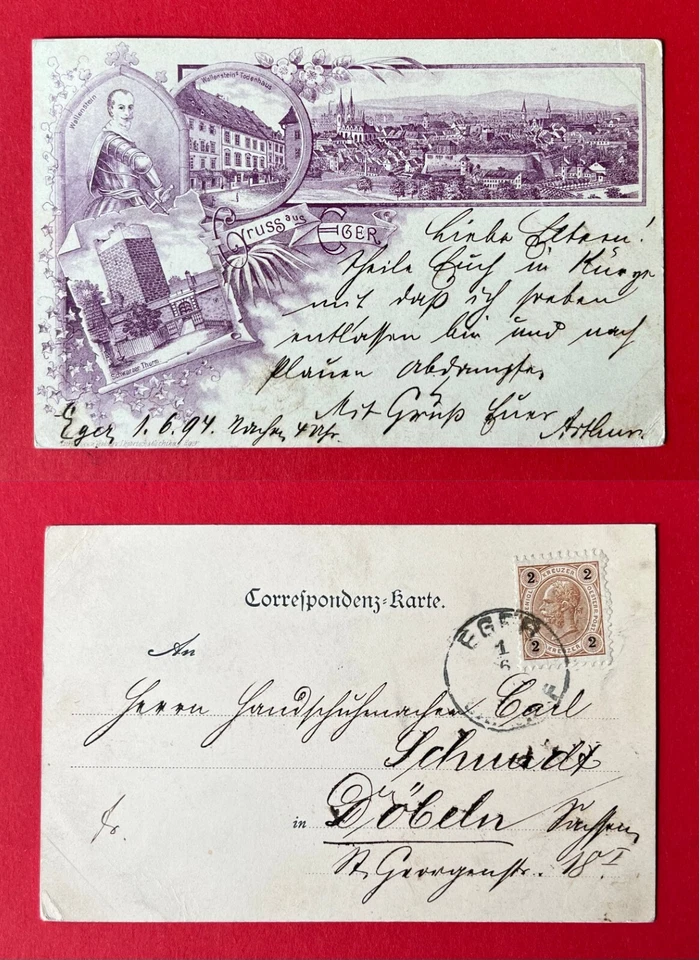 Wallenstein
Wallenstein's Todenhaus
Gruss aus EGER.
Schwarzer Thurm
Liebe Eltern!
theile Euch in Kürze
mit daß ich soeben
entlassen bin und nach
Plauen abdampfe.
Mit Gruß Euer
Eger 1.6.94. Nachm. 4 Uhr. Arthur.
Correspondenz-Karte.
2 KREUZER 2
2 KREUZER 2
EGER
1
6
An
Herrn Handschuhmacher Carl
Schmidt
in Döbeln Sachsen
St. Georgenstr. 18 I
fr.